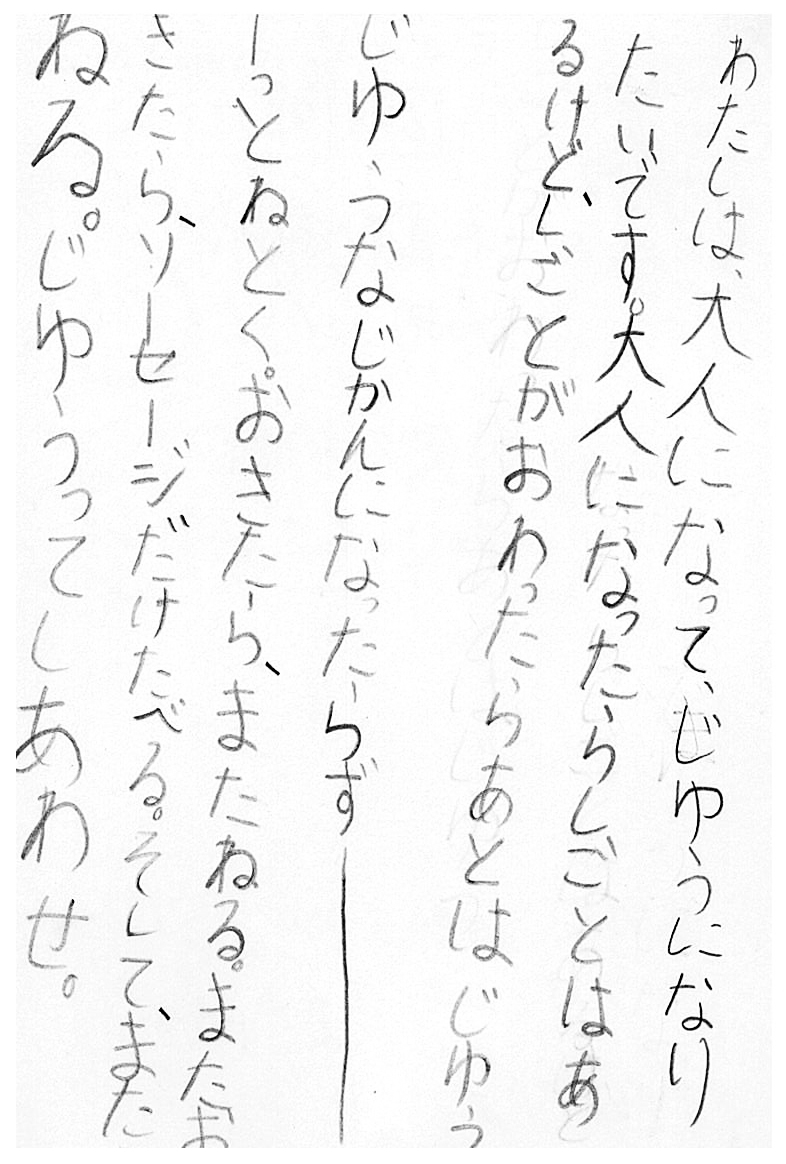 わたしは、大人になって、じゆうになり
たいです。大人になったらしごとはあ
るけど、しごとがおわったらあとはじゆう
じゆうなじかんになったらずー
ーっとねとく。おきたら、またねる。またお
きたら、ソーセージだけたべる。そして、また
ねる。じゆうってしあわせ。